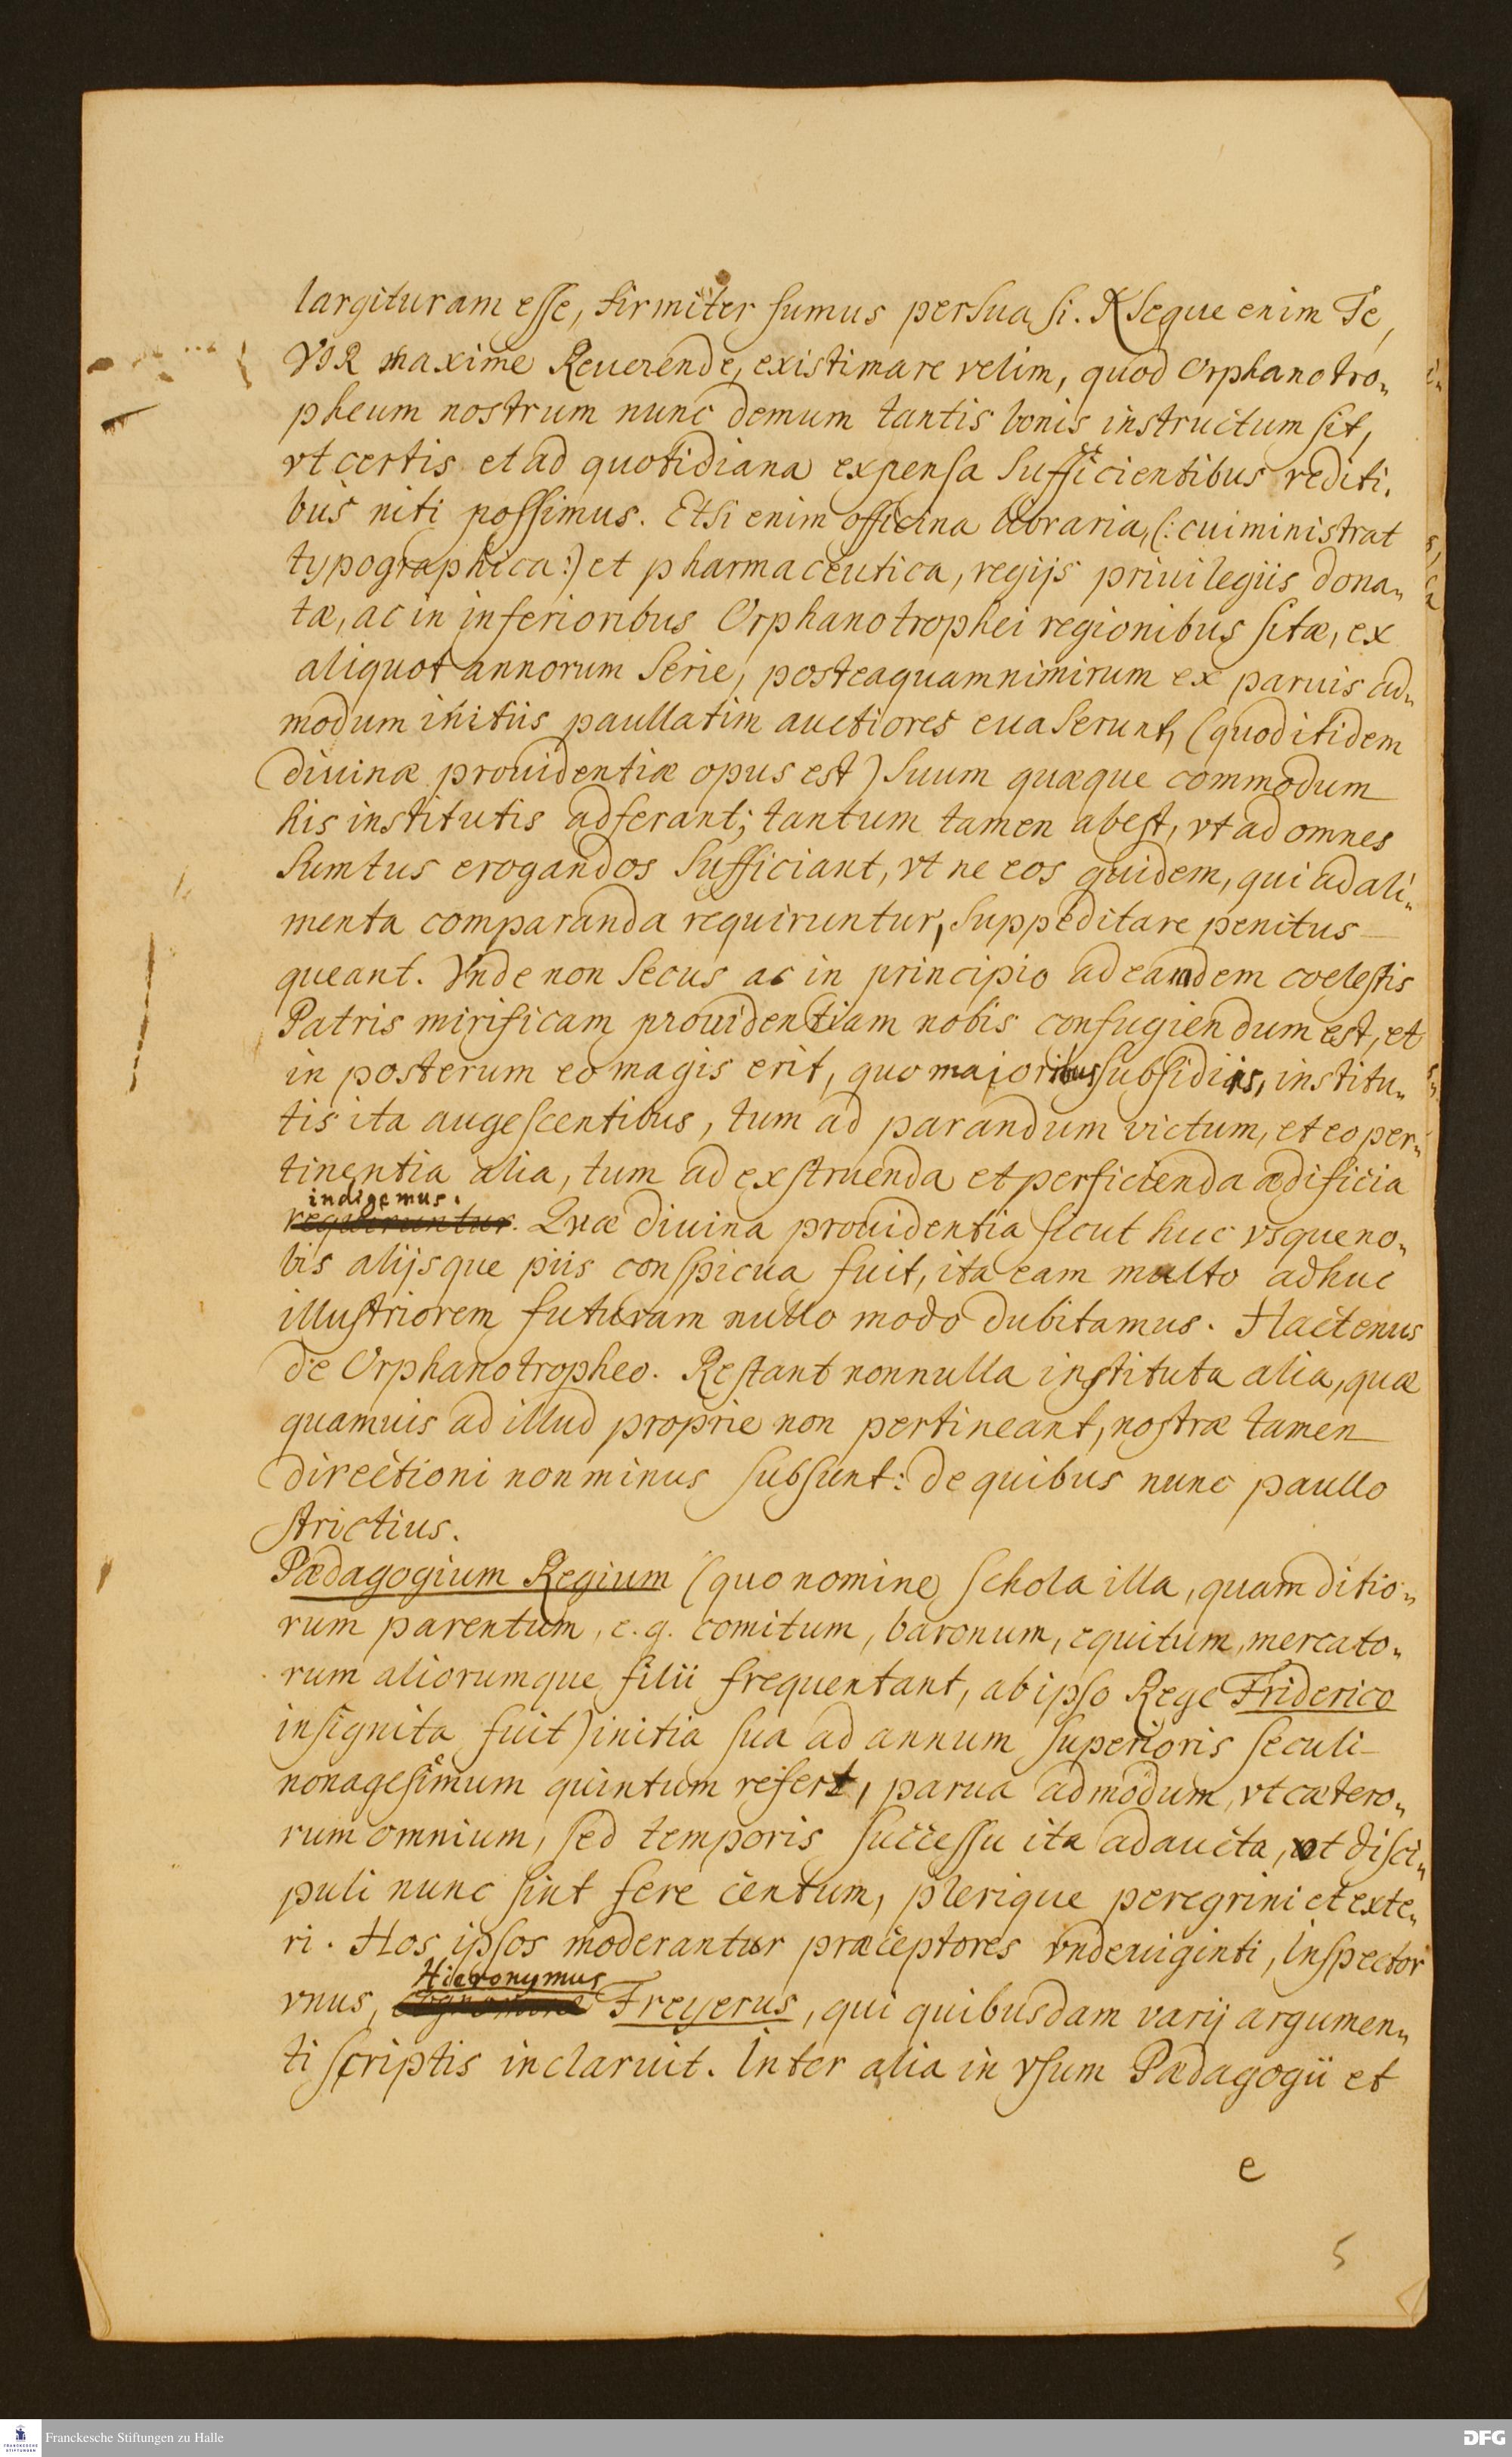 largituram esse, firmiter sumus persuasi. Neque enim Te,
VIR maxime Reuerende, existimare velim, quod Orphanotro„
pheum nostrum nunc demum tantis bonis instructum sit,
vt certis et ad quotidiana expensa sufficientibus rediti„
bus niti possimus. Etsi enim officina libraria, (: cui ministrat
typographica :) et pharmaceutica, regijs priuilegiis dona„
tæ, ac in inferioribus Orphanotrophei regionibus sitæ, ex
aliquot annorum serie, posteaquam nimirum ex paruis ad„
modum initiis paullatim auctiores euaserunt, (quod itidem
diuinæ prouidentiæ opus est) suum quæque commodum
his institutis adferant; tantum tamen abest, vt ad omnes
sumtus erogandos sufficiant, vt ne eos quidem, qui ad ali„
menta comparanda requiruntur, suppeditare penitus
queant. Vnde non secus ac in principio ad eamdem coelestis
Patris mirificam prouidentiam nobis confugiendum est, et
in posterum eo magis erit, quo majoribus subsidiis, institu„
tis ita augescentibus, tum ad parandum victum, et eo per„
tinentia alia, tum ad exstruenda et perficienda ædificia
indigemus.
requiruntur. Quæ diuina prouidentia sicut huc vsque no„
bis alijsque piis conspicua fuit, ita eam multo adhuc
illustriorem futuram nullo modo dubitamus. Hactenus
de Orphanotropheo. Restant nonnulla instituta alia, quæ
quamuis ad illud proprie non pertineant, nostræ tamen
directioni non minus subsunt: de quibus nunc paullo
strictius.
Pædagogium Regium (quo nomine schola illa, quam ditio„
rum parentum, e. g. comitum, baronum, equitum, mercato„
rum aliorumque filii frequentant, ab ipso Rege Friderico
insignita fuit) initia sua ad annum superioris seculi
nonagesimum quintum refert, parua admodum, vt cætero„
rum omnium, sed temporis successu ita adaucta, vt disci„
puli nunc sint fere centum, plerique peregrini et exte„
ri. Hos ipsos moderantur præceptores vndeuiginti, Inspector
Hieronymus
vnus, cognomine Freyerus, qui quibusdam varij argumen„
ti scriptis inclaruit. Inter alia in vsum Pædagogii et
e
5
Franckesche Stiftungen zu Halle
DFG